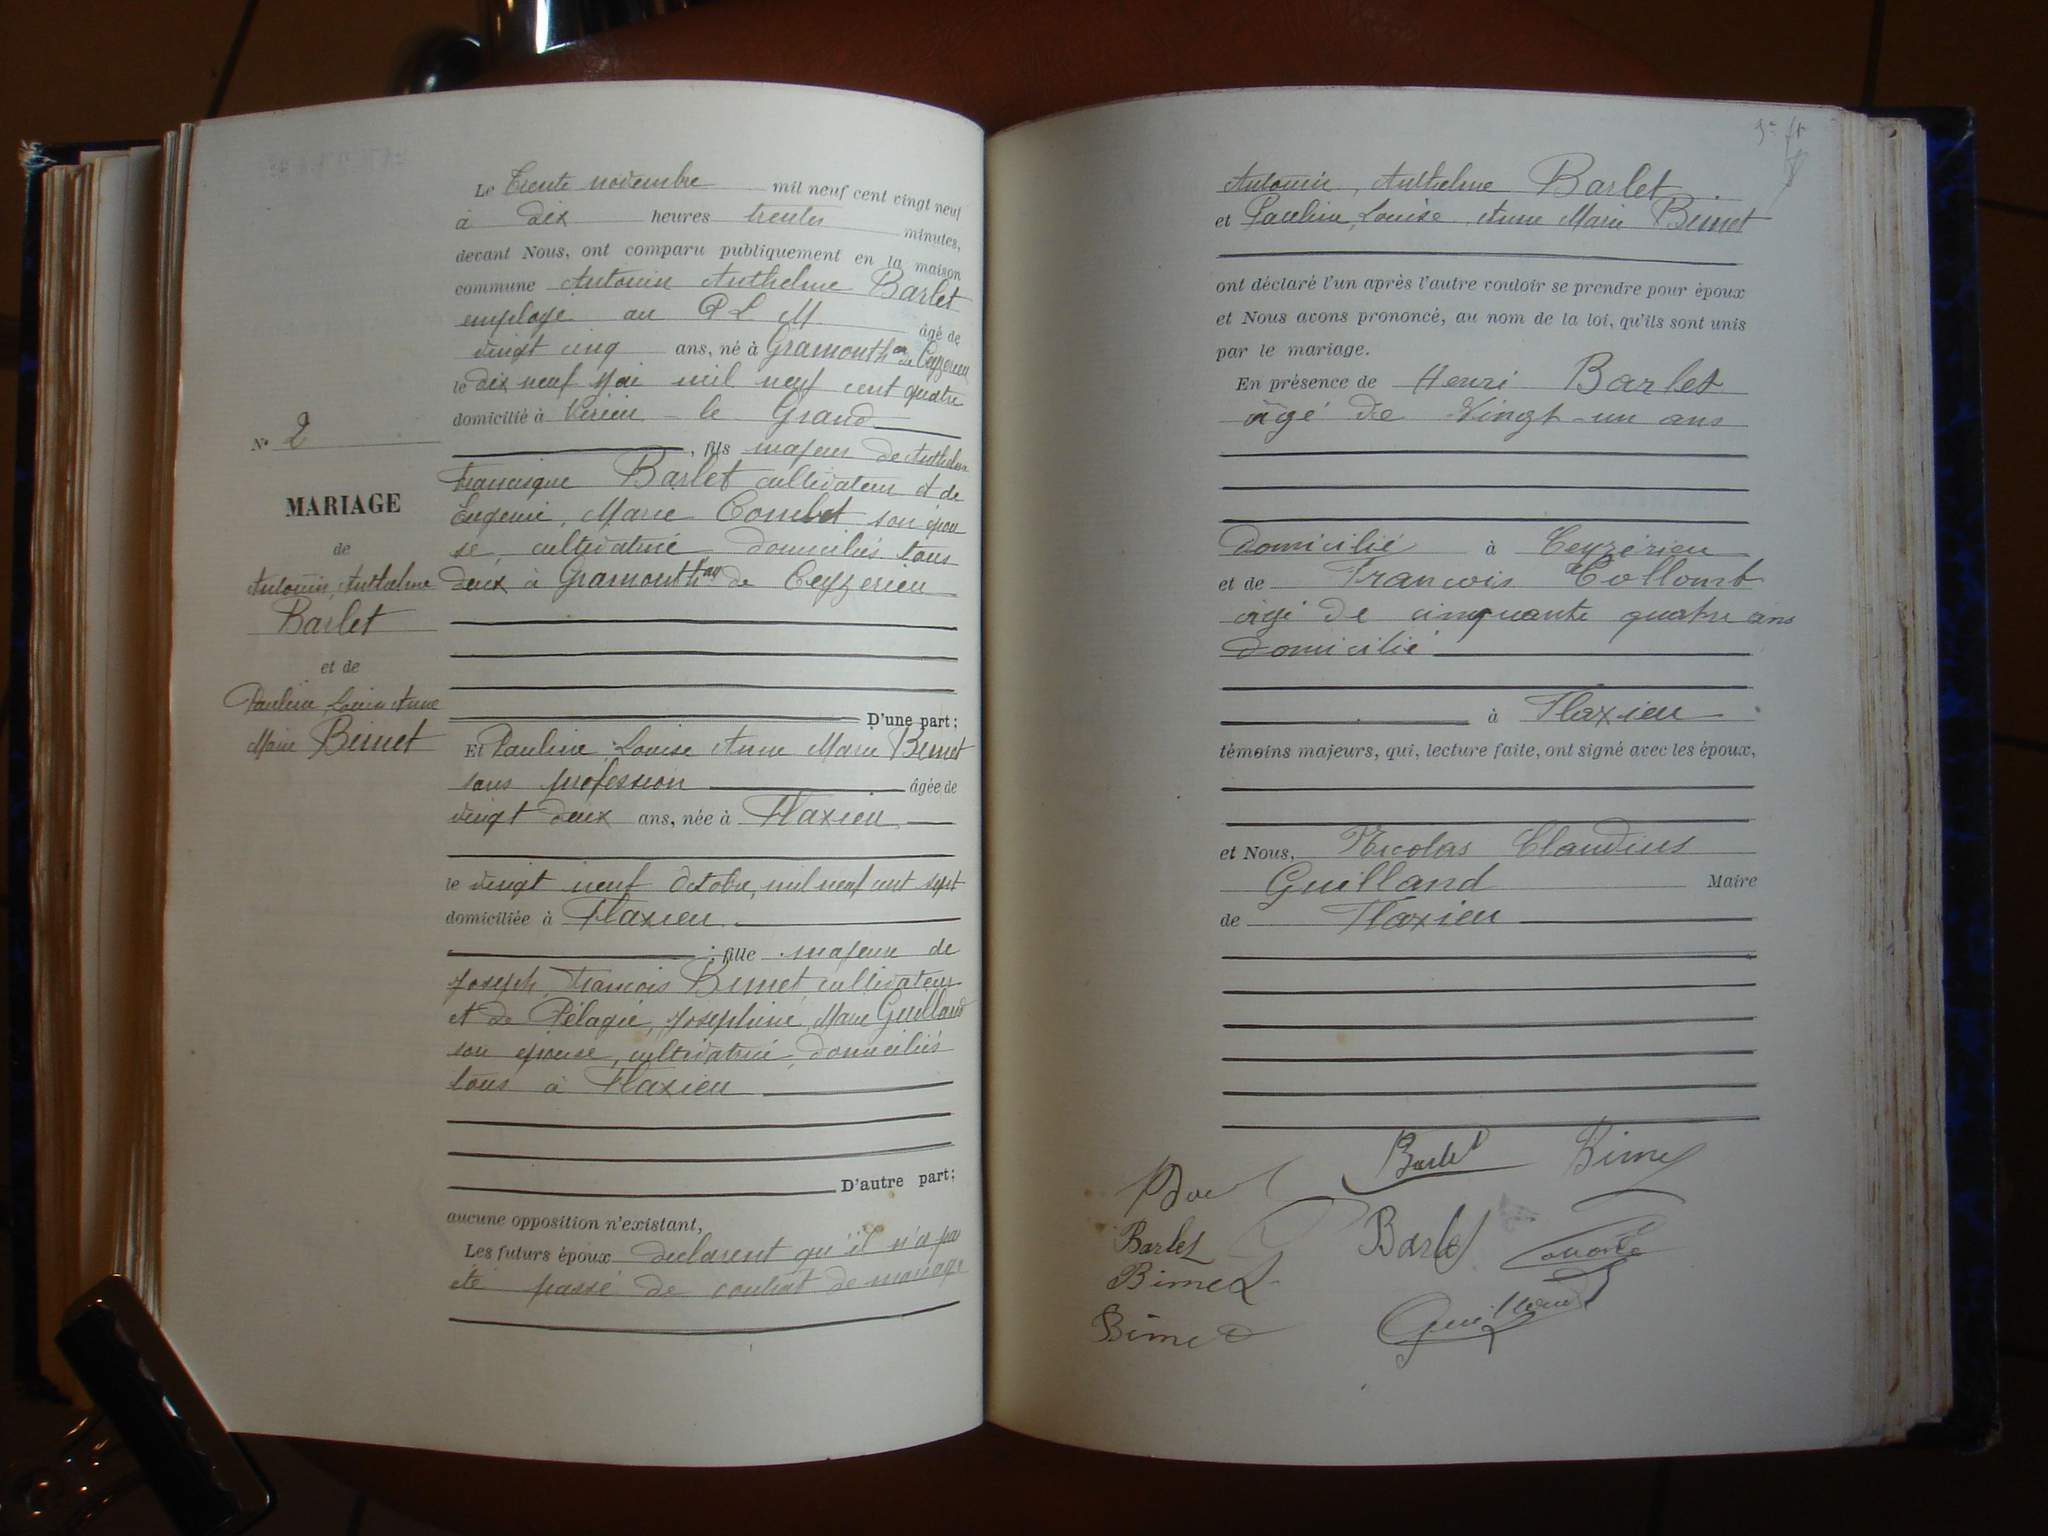 Le Trente novembre mil neuf cent vingt neuf
à dix heures trentes minutes,
devant Nous, ont comparu publiquement en la maison
commune Antonin Anthelme Barlet
employé au P L M âgé de
vingt cinq ans, né à Gramont hau de Ceyzerieu
le dix neuf Mai mil neuf cent quatre
domicilié à Virieu - le Grand
, fils majeur de Anthelme
Francisque Barlet cultivateur et de
Eugenie, Marie Combet son épou
se cultivatrice domiciliés tous
deux à Gramont hau de Ceyzerieu
D'une part;
Et Pauline Louise Anne Marie Bimet
sans profession âgée de
vingt deux ans, née à Flaxieu
le vingt neuf Octobre, mil neuf cent sept
domiciliée à Flaxieu
; fille majeure de
Joseph, François Bimet, cultivateur
et de Pélagie, Joséphine, Marie Guilland
son épouse, cultivatrice, domiciliés
tous à Flaxieu
D'autre part;
aucune opposition n'existant,
Les futurs époux declarent qu'il n'a pas
été passé de contrat de mariage
No 2
MARIAGE
de
Antonin, Anthelme
Barlet
et de
Pauline Louise Anne
Marie Bimet
Antonin, Anthelme Barlet
et Pauline, Louise, Anne Marie Bimet
ont déclaré l'un après l'autre vouloir se prendre pour époux
et Nous avons prononcé, au nom de la loi, qu'ils sont unis
par le mariage.
En présence de Henri Barlet
âgé de Vingt-un ans
domicilié à Ceyzérieu
et de François Collomb
âgé de cinquante quatre ans
domicilié
à Flaxieu
témoins majeurs, qui, lecture faite, ont signé avec les époux,
et Nous, Nicolas Claudius
Guilland Maire
de Flaxieu
Barlet Bimet
Barlet Barlet
Bimet
Bimet Guilland